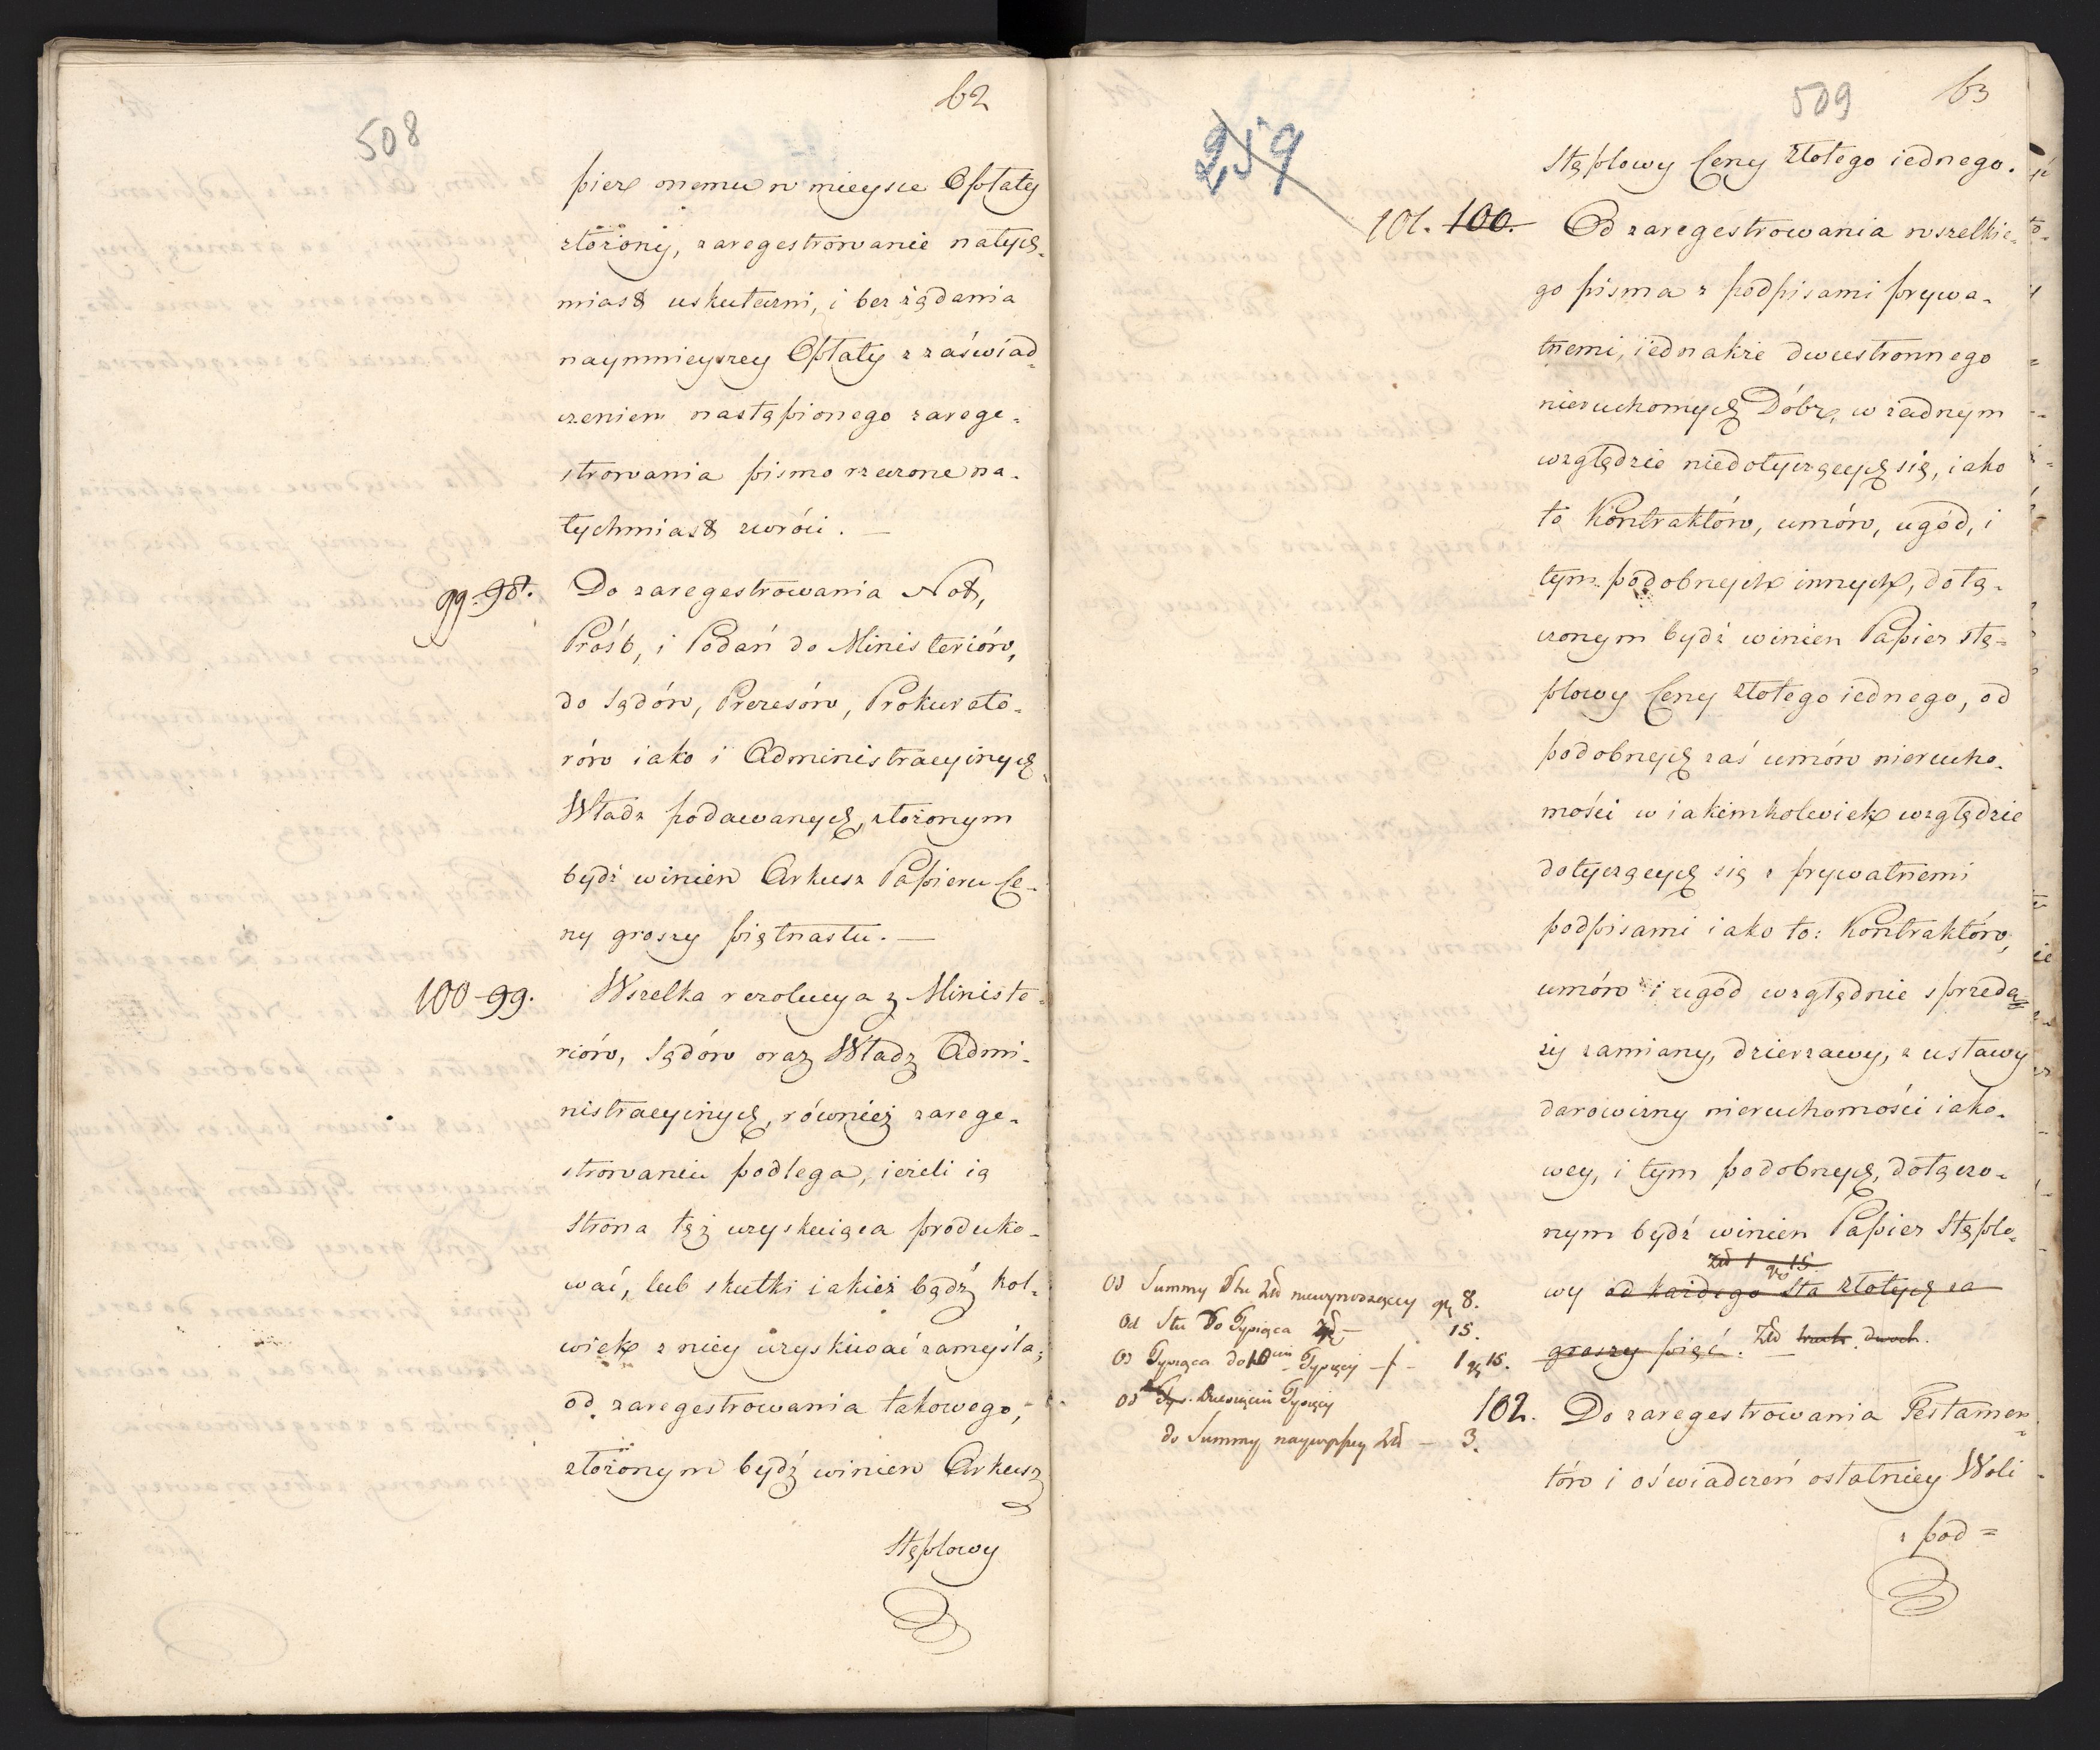 62
508
pier onemu w mieysce Opłaty
złożony, zaregestrowanie natych-
miast uskuteczni, i bez żądania
naymnieyszey Opłaty z zaświad-
czeniem nastąpionego zarege-
strowania pismo rzeczone na-
tychmiast zwróci. —
99. 98. Do zaregestrowania Not,
Próśb, i Podań do Ministeriów,
do Sądów, Prezesów, Prokurato-
rów iako i Administracyinych
Władz podawanych, złożonym
bydź winien Arkusz Papieru Ce-
ny groszy piętnastu. —
100 99. Wszelka rezolucya z Ministe-
riów, Sądów oraz Władz Admi-
nistracyinych, również zarege-
strowaniu podlega, ieżeli ią
Strona tęż uzyskuiąca produko-
wać, lub skutki iakież bądź kol-
wiek z niey uzyskiwać zamyśla;
od zaregestrowania takowego,
złożonym bydź winien Arkusz
Stęplowy
509
63
259
Stęplowy Ceny Złotego iednego.
101. 100. Od zaregestrowania wszelkie-
go pisma z podpisami prywa-
tnemi, iednakże dwustronnego
nieruchomych Dóbr, w żadnym
względzie niedotyczących się, iako
to Kontraktów, umów, ugód, i
tym podobnych innych, dołą-
czonym bydź winien Papier stę-
plowy Ceny złotego iednego, od
podobnych zaś umów nierucho-
mości w iakimkolwiek względzie
dotyczących się z prywatnemi
podpisami iako to: Kontraktów,
umów i ugód względnie sprzeda-
ży zamiany, dzierzawy, z ustawy
darowizny nieruchomości iako-
wey, i tym podobnych, dołączo-
nym bydź winien Papier Stęplo-
Zł 1 gr 15
wy od każdego Sta Złotych za
groszy pięć. Zł dwóch.
Od Summy Stu Zł niewynoszącey gr 8.
Od Stu Do Tysiąca Zł — 15.
Od Tysiąca do 10ciu Tysięcy — 1 gr 15.
Od Dziesięciu Tysięcy
do Summy naywyższey Zł — 3.
102. Do zaregestrowania Testamen-
tów i oświadczeń ostatniey Woli
z pod=